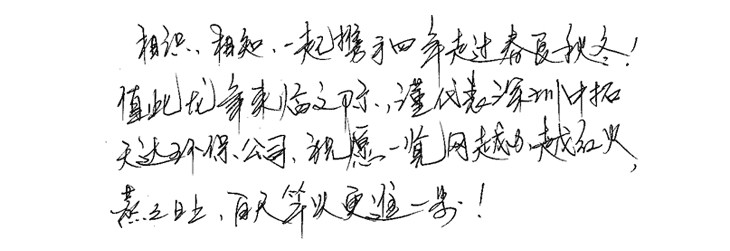 相识、相知、一起携手四年走过春夏秋冬！
值此龙年来临之际，谨代表深圳中拓
天达环保公司、祝愿一览网越办越红火，
蒸蒸日上，百尺竿头更进一步！